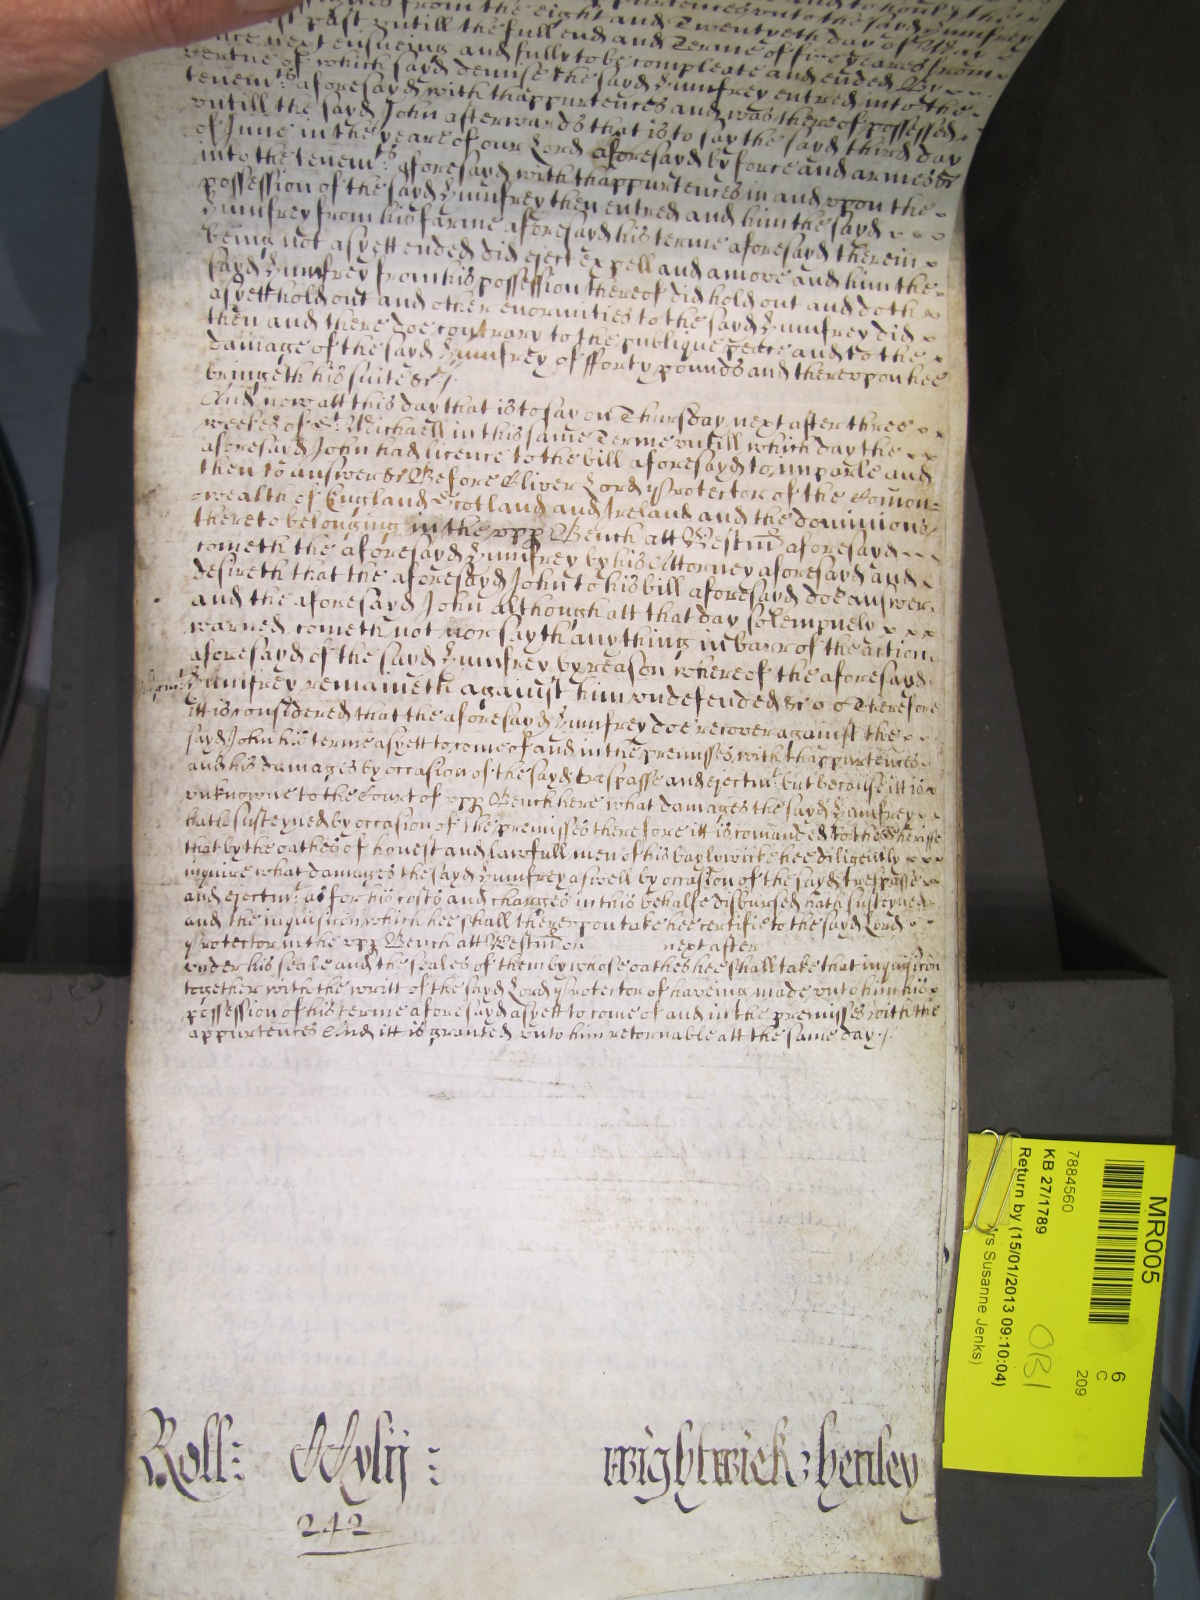 from the eight and Twentyeth day of May
last past untill the full end and Terme of five yeares from
thence next ensueing and fully to be compleate and ended By
vertue of which sayd demise the sayd Humfrey entred into the
tenemts aforesayd with thappurtences and was thereof possessed
untill the sayd John afterwards that is to say the sayd third day
of June in the yeare of our Lord aforesayd by force and armes &c
into the tenemts aforesayd with thappurtences in and vpon the
possession of the sayd Humfrey then entred and him the sayd
Humfrey from his farme aforesayd his terme aforesayd therein
being not as yett ended did eject expell and amove and him the
sayd Humfrey from his possession thereof did hold out and doth
as yett hold out and other enormities to the sayd Humfrey did
then and there doe contrary to the publique peace and to the
damage of the sayd Humfrey of fforty pounds and therevpon hee
bringeth his suite &c
And now att this day that is to say on Thursday next after three
weekes of St Michaell in this same Terme vntill which day the
aforesayd John had licence to the bill aforesayd to imparle and
then to answer &c Before Oliver Lord Protector of the Comon=
=wealth of England Scotland and Ireland and the dominions
thereto belonging in the vpp Bench att Westm aforesayd
cometh the aforesayd Humfrey by his Attorney aforesayd and
desireth that the aforesayd John to his bill aforesayd doe answer
and the aforesayd John although att that day solempnely
warned cometh not nor sayth anything in barr of the action
aforesayd of the sayd Humfrey by reason whereof the aforesayd
Humfrey remaineth against him vndefended &c Therefore
itt is considered that the aforesayd Humfrey doe recover against the
sayd John his terme as yett to come of and in the premisses with thappurtences
and his damages by occasion of the sayd trespasse and ejectmt but because itt is
vnknowne to the Court of vpp Bench here what damages the sayd Humfrey
hath susteyned by occasion of the premisses therefore itt is comanded to the Sheriffe
that by the oathes of honest and lawfull men of his baylywicke hee diligently
inquire what damages the sayd Humfrey aswell by occasion of the sayd trespasse
and ejectmt as for his costs and charges in this behalfe disbursed hath susteyned
and the inquisicon which hee shall therevpon take hee certifie to the sayd Lord
Protector in the vpp Bench att Westm on next after
vnder his seale and the seales of them by whose oathes hee shall take that inquisicon
together with the writt of the sayd Lord Protector of haveing made vnto him his
possession of his terme aforesayd as yett to come of and in the premisses with the
appurtences And itt is granted vnto him retornable att the same day
Roll: :
wightwick & henley
242
MR005
7884560
KB 27/1789
Return by (15/01/2013 09:10:04)
rs Susanne Jenks)
6
C
209
OB1